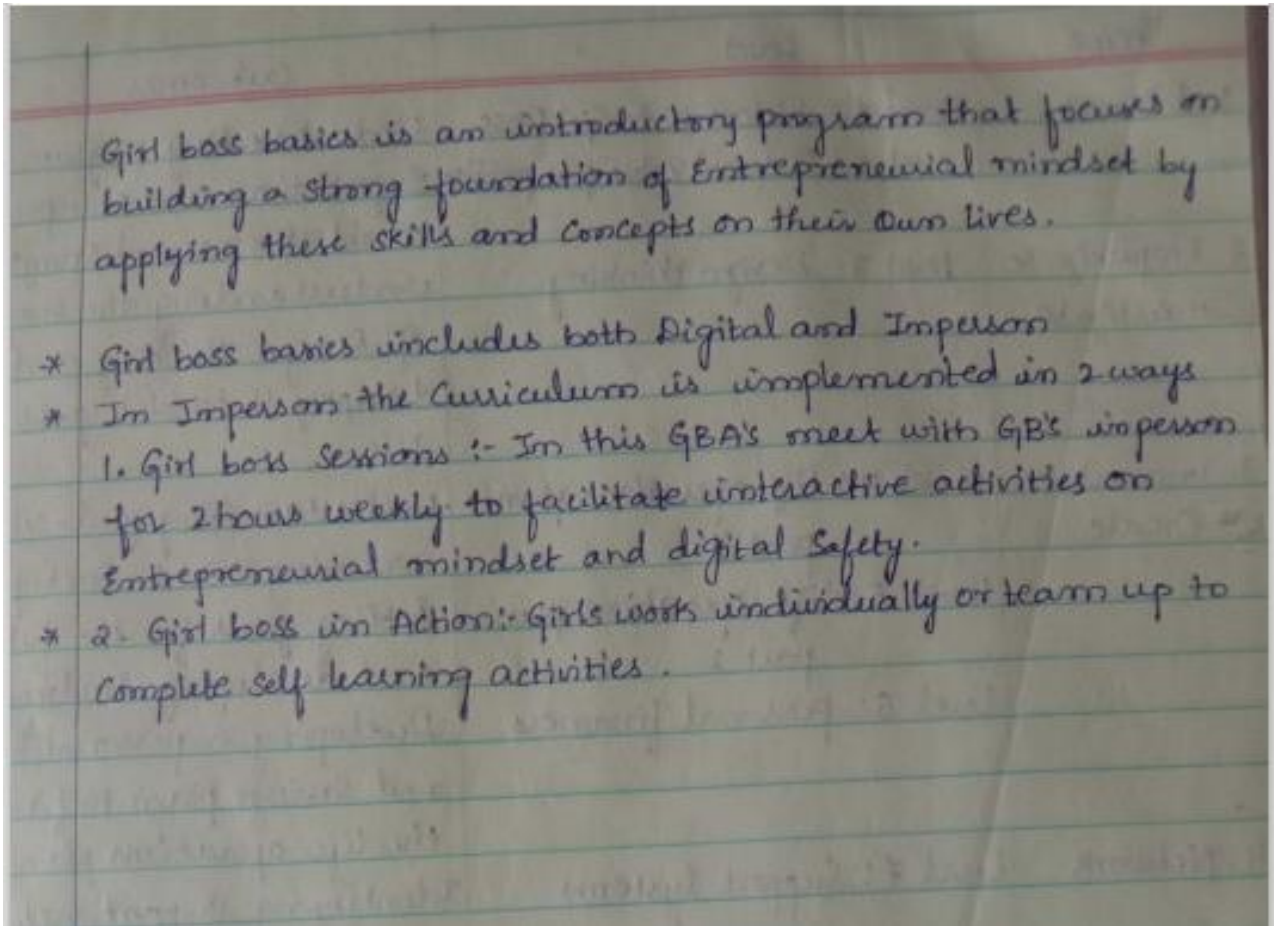 Girl boss basics is an introductory program that focuses on
building a strong foundation of Entrepreneurial mindset by
applying these skills and concepts on their own lives.
* Girl boss basics includes both Digital and Inperson
* In Inperson the Curriculum is implemented in 2 ways
1. Girl boss Sessions :- In this GBA's meet with GB's inperson
for 2 hours weekly to facilitate interactive activities on
Entrepreneurial mindset and digital Safety.
* 2. Girl boss in Action:- Girls work individually or team up to
Complete self learning activities.